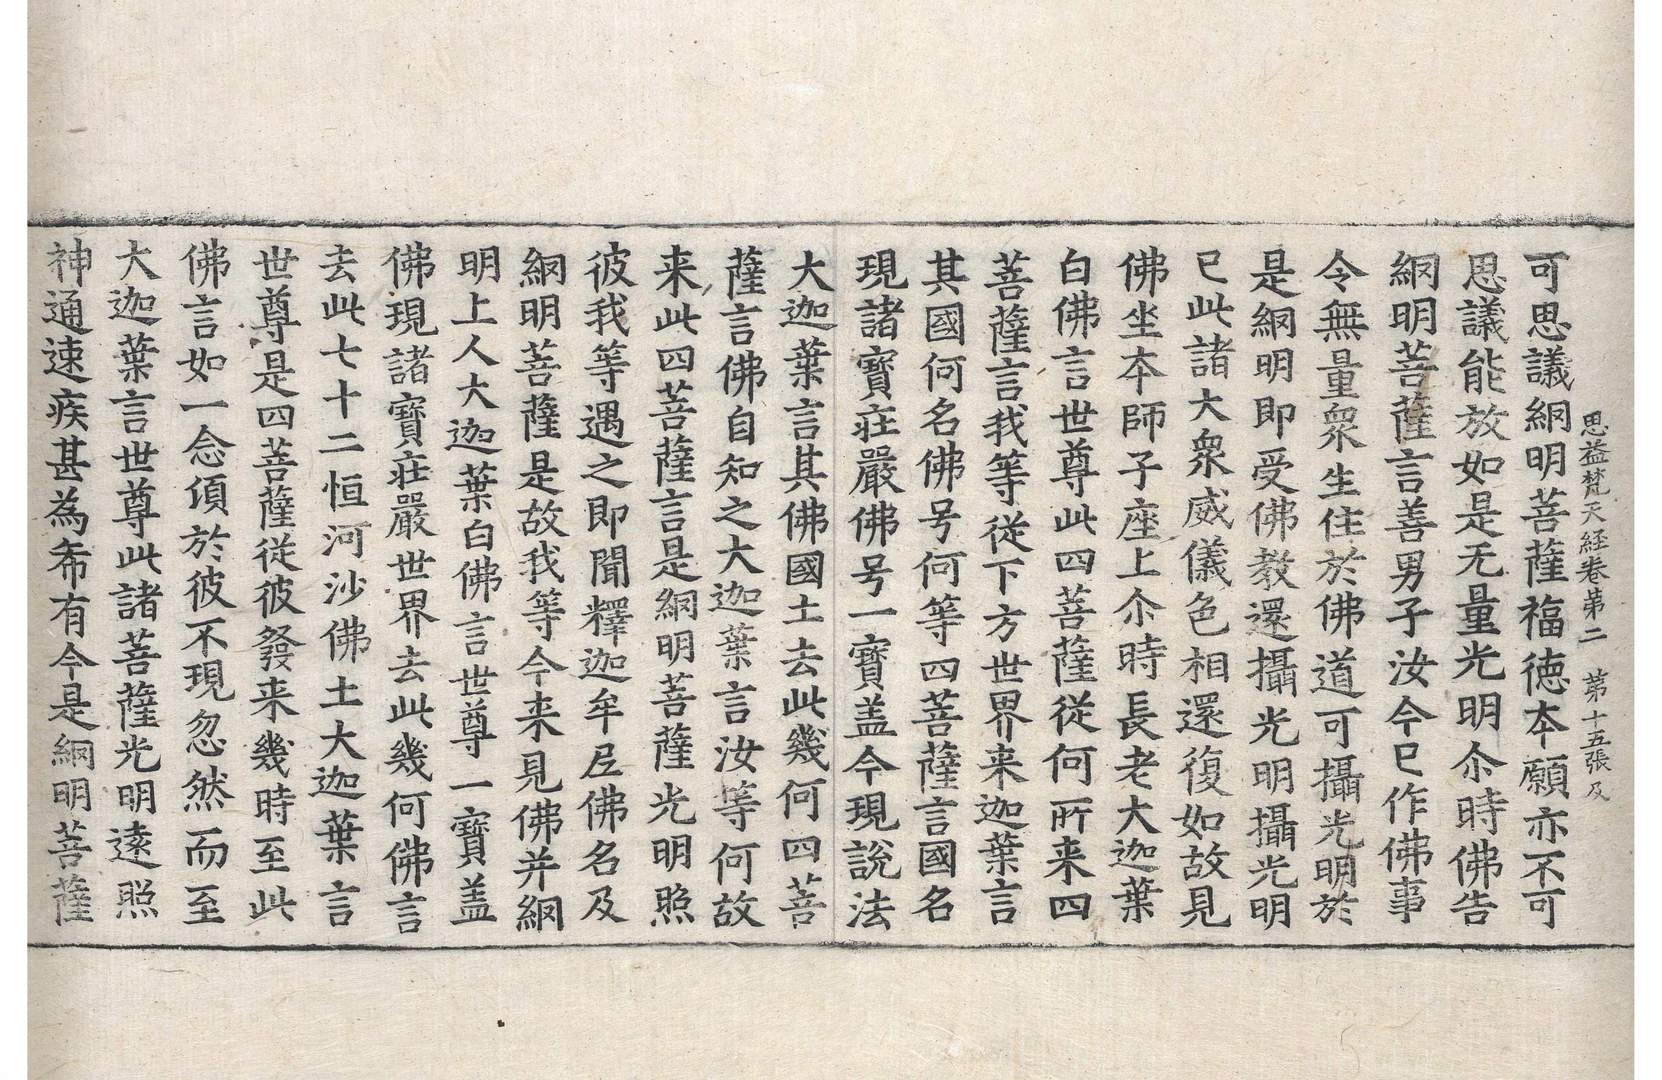 思益梵天経巻第二　第十五張　及
可思議網明菩薩福徳本願亦不可
思議能放如是无量光明尒時佛告
網明菩薩言善男子汝今已作佛事
令無量衆生住於佛道可攝光明於
是網明即受佛教還攝光明攝光明
已此諸大衆威儀色相還復如故見
佛坐本師子座上尒時長老大迦葉
白佛言世尊此四菩薩從何所来四
菩薩言我等從下方世界来迦葉言
其國何名佛号何等四菩薩言國名
現諸寶莊嚴佛号一寶盖今現說法
大迦葉言其佛國土去此幾何四菩
薩言佛自知之大迦葉言汝等何故
来此四菩薩言是網明菩薩光明照
彼我等遇之即聞釋迦牟尼佛名及
網明菩薩是故我等今来見佛并網
明上人大迦葉白佛言世尊一寶盖
佛現諸寶莊嚴世界去此幾何佛言
去此七十二恒河沙佛土大迦葉言
世尊是四菩薩從彼發来幾時至此
佛言如一念頃於彼不現忽然而至
大迦葉言世尊此諸菩薩光明遠照
神通速疾甚為希有今是網明菩薩